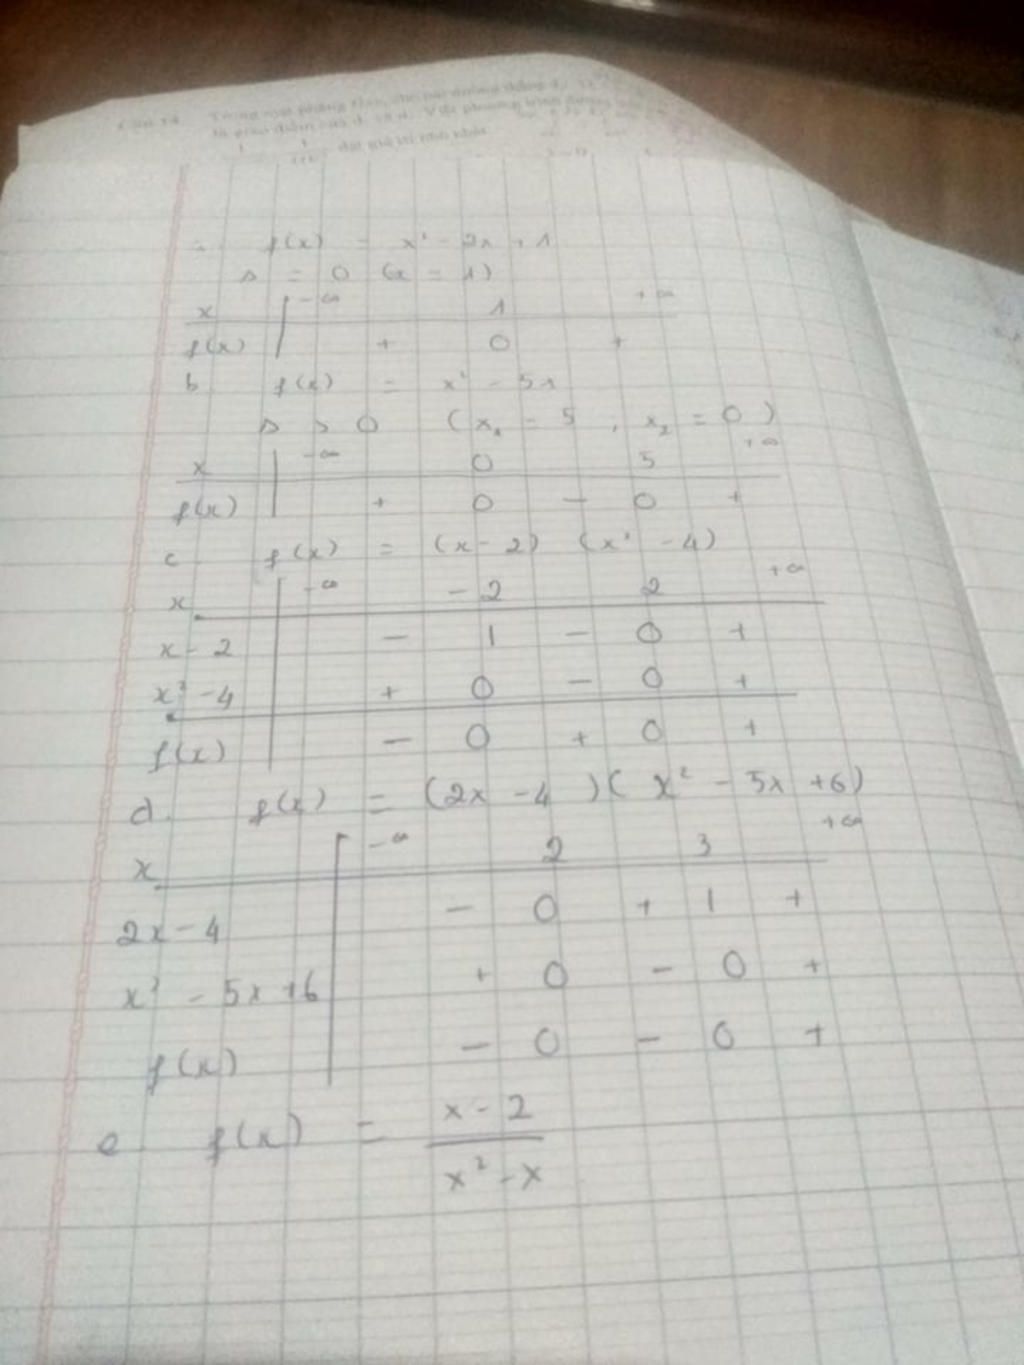 f(x) = x² - 2x + 1
Δ = 0 (x = 1)
x -∞ 1 +∞
f(x) + 0 +
b f(x) = x² - 5x
Δ > 0 (x₁ = 5 , x₂ = 0)
x -∞ 0 5 +∞
f(x) + 0 - 0 +
c f(x) = (x - 2) (x² - 4)
x -∞ -2 2 +∞
x - 2 - | - 0 +
x² - 4 + 0 - 0 +
f(x) - 0 + 0 +
d. f(x) = (2x - 4)(x² - 5x + 6)
x -∞ 2 3 +∞
2x - 4 - 0 + | +
x² - 5x + 6 + 0 - 0 +
f(x) - 0 - 0 +
e f(x) = x - 2
x² - x